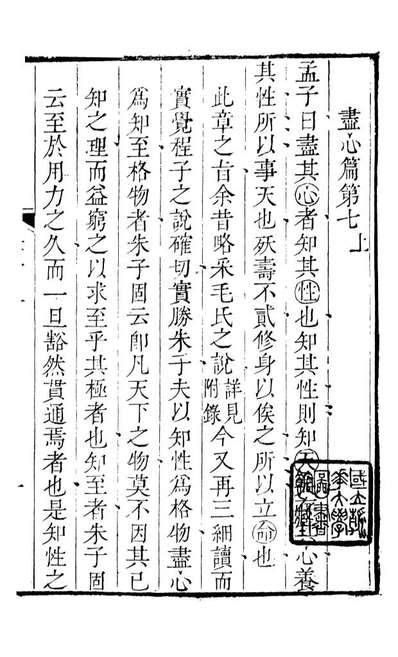 盡心篇第七上
孟子曰盡其心者知其性也知其性則知天心養
其性所以事天也殀壽不貳修身以俟之所以立命也
此章之旨余昔略采毛氏之說詳見附錄今又再三細讀而
實覺程子之說確切實勝朱子夫以知性爲格物盡心
爲知至格物者朱子固云卽凡天下之物莫不因其已
知之理而益窮之以求至乎其極者也知至者朱子固
云至於用力之久而一旦豁然貫通焉者也是知性之